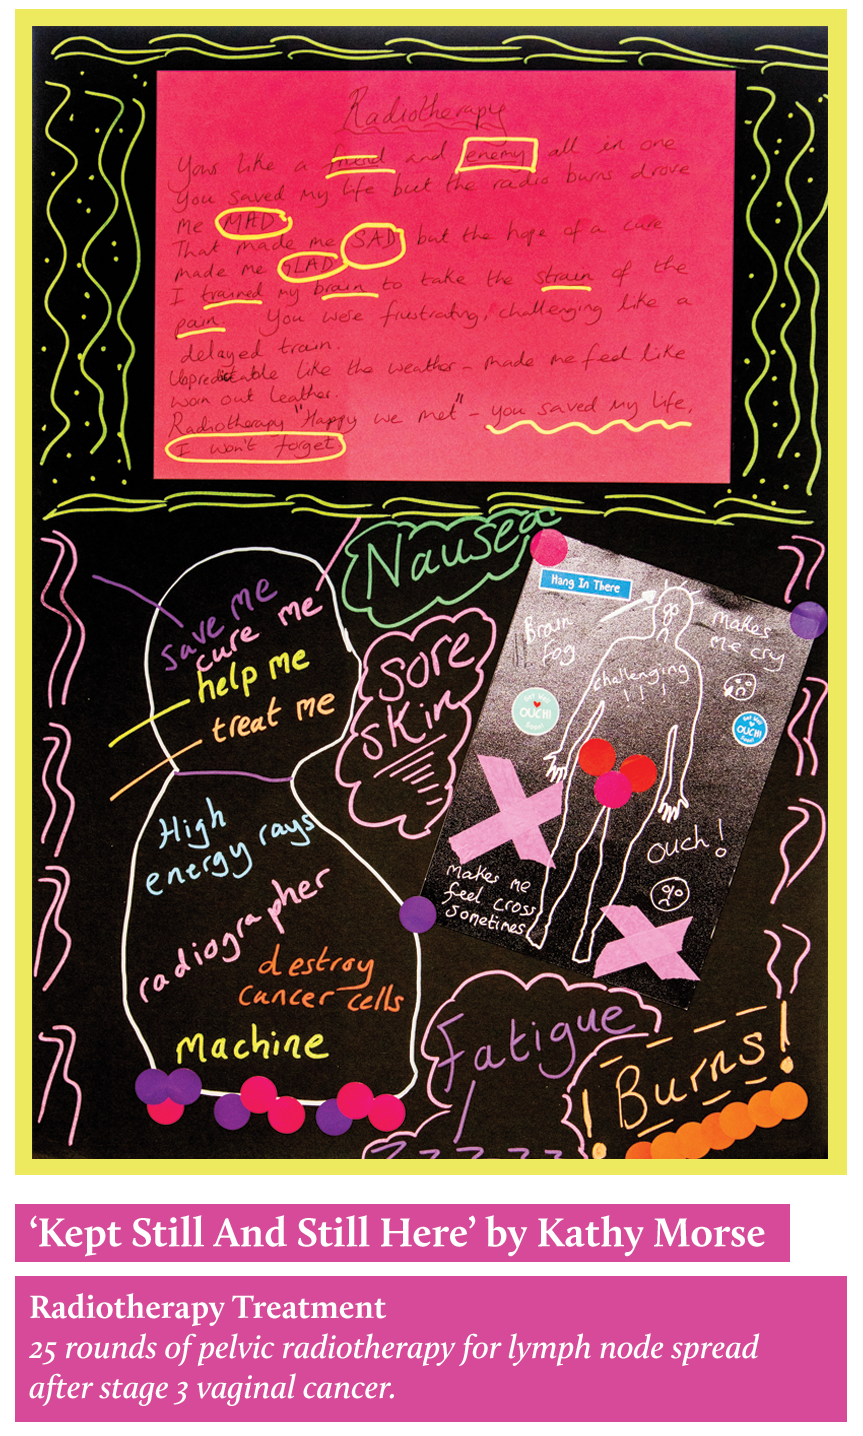 Radiotherapy
Yours like a friend and enemy all in one
You saved my life but the radio burns drove
me MAD.
That made me SAD but the hope of a cure
made me GLAD
I trained my brain to take the strain of the
pain. You were frustrating, challenging like a
delayed train.
Unpredictable like the weather - made me feel like
worn out leather.
Radiotherapy "Happy we met" - you saved my life,
I won't forget
Nausea
save me
cure me
help me
treat me
sore
skin
Hang In There
Brain
fog
Makes
me cry
challenging
! ! !
Get Well
OUCH!
Soon!
Get Well
OUCH!
Soon!
Ouch!
Makes me
feel cross
sometimes
High
energy rays
radiographer
destroy
cancer cells
Machine
Fatigue
zzzzz
! Burns!
‘Kept Still And Still Here’ by Kathy Morse
Radiotherapy Treatment
25 rounds of pelvic radiotherapy for lymph node spread
after stage 3 vaginal cancer.